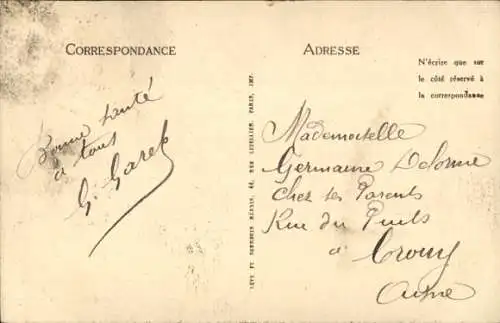 CORRESPONDANCE
Bonne santé
à tous
G. Garel
LEVY ET NEURDEIN RÉUNIS, 44, RUE LETELLIER, PARIS, IMP.
ADRESSE
N'écrire que sur
le côté réservé à
la correspondance
Mademoiselle
Germaine Delorme
chez ses Parents
Rue du Puits
à Crouy
Aisne